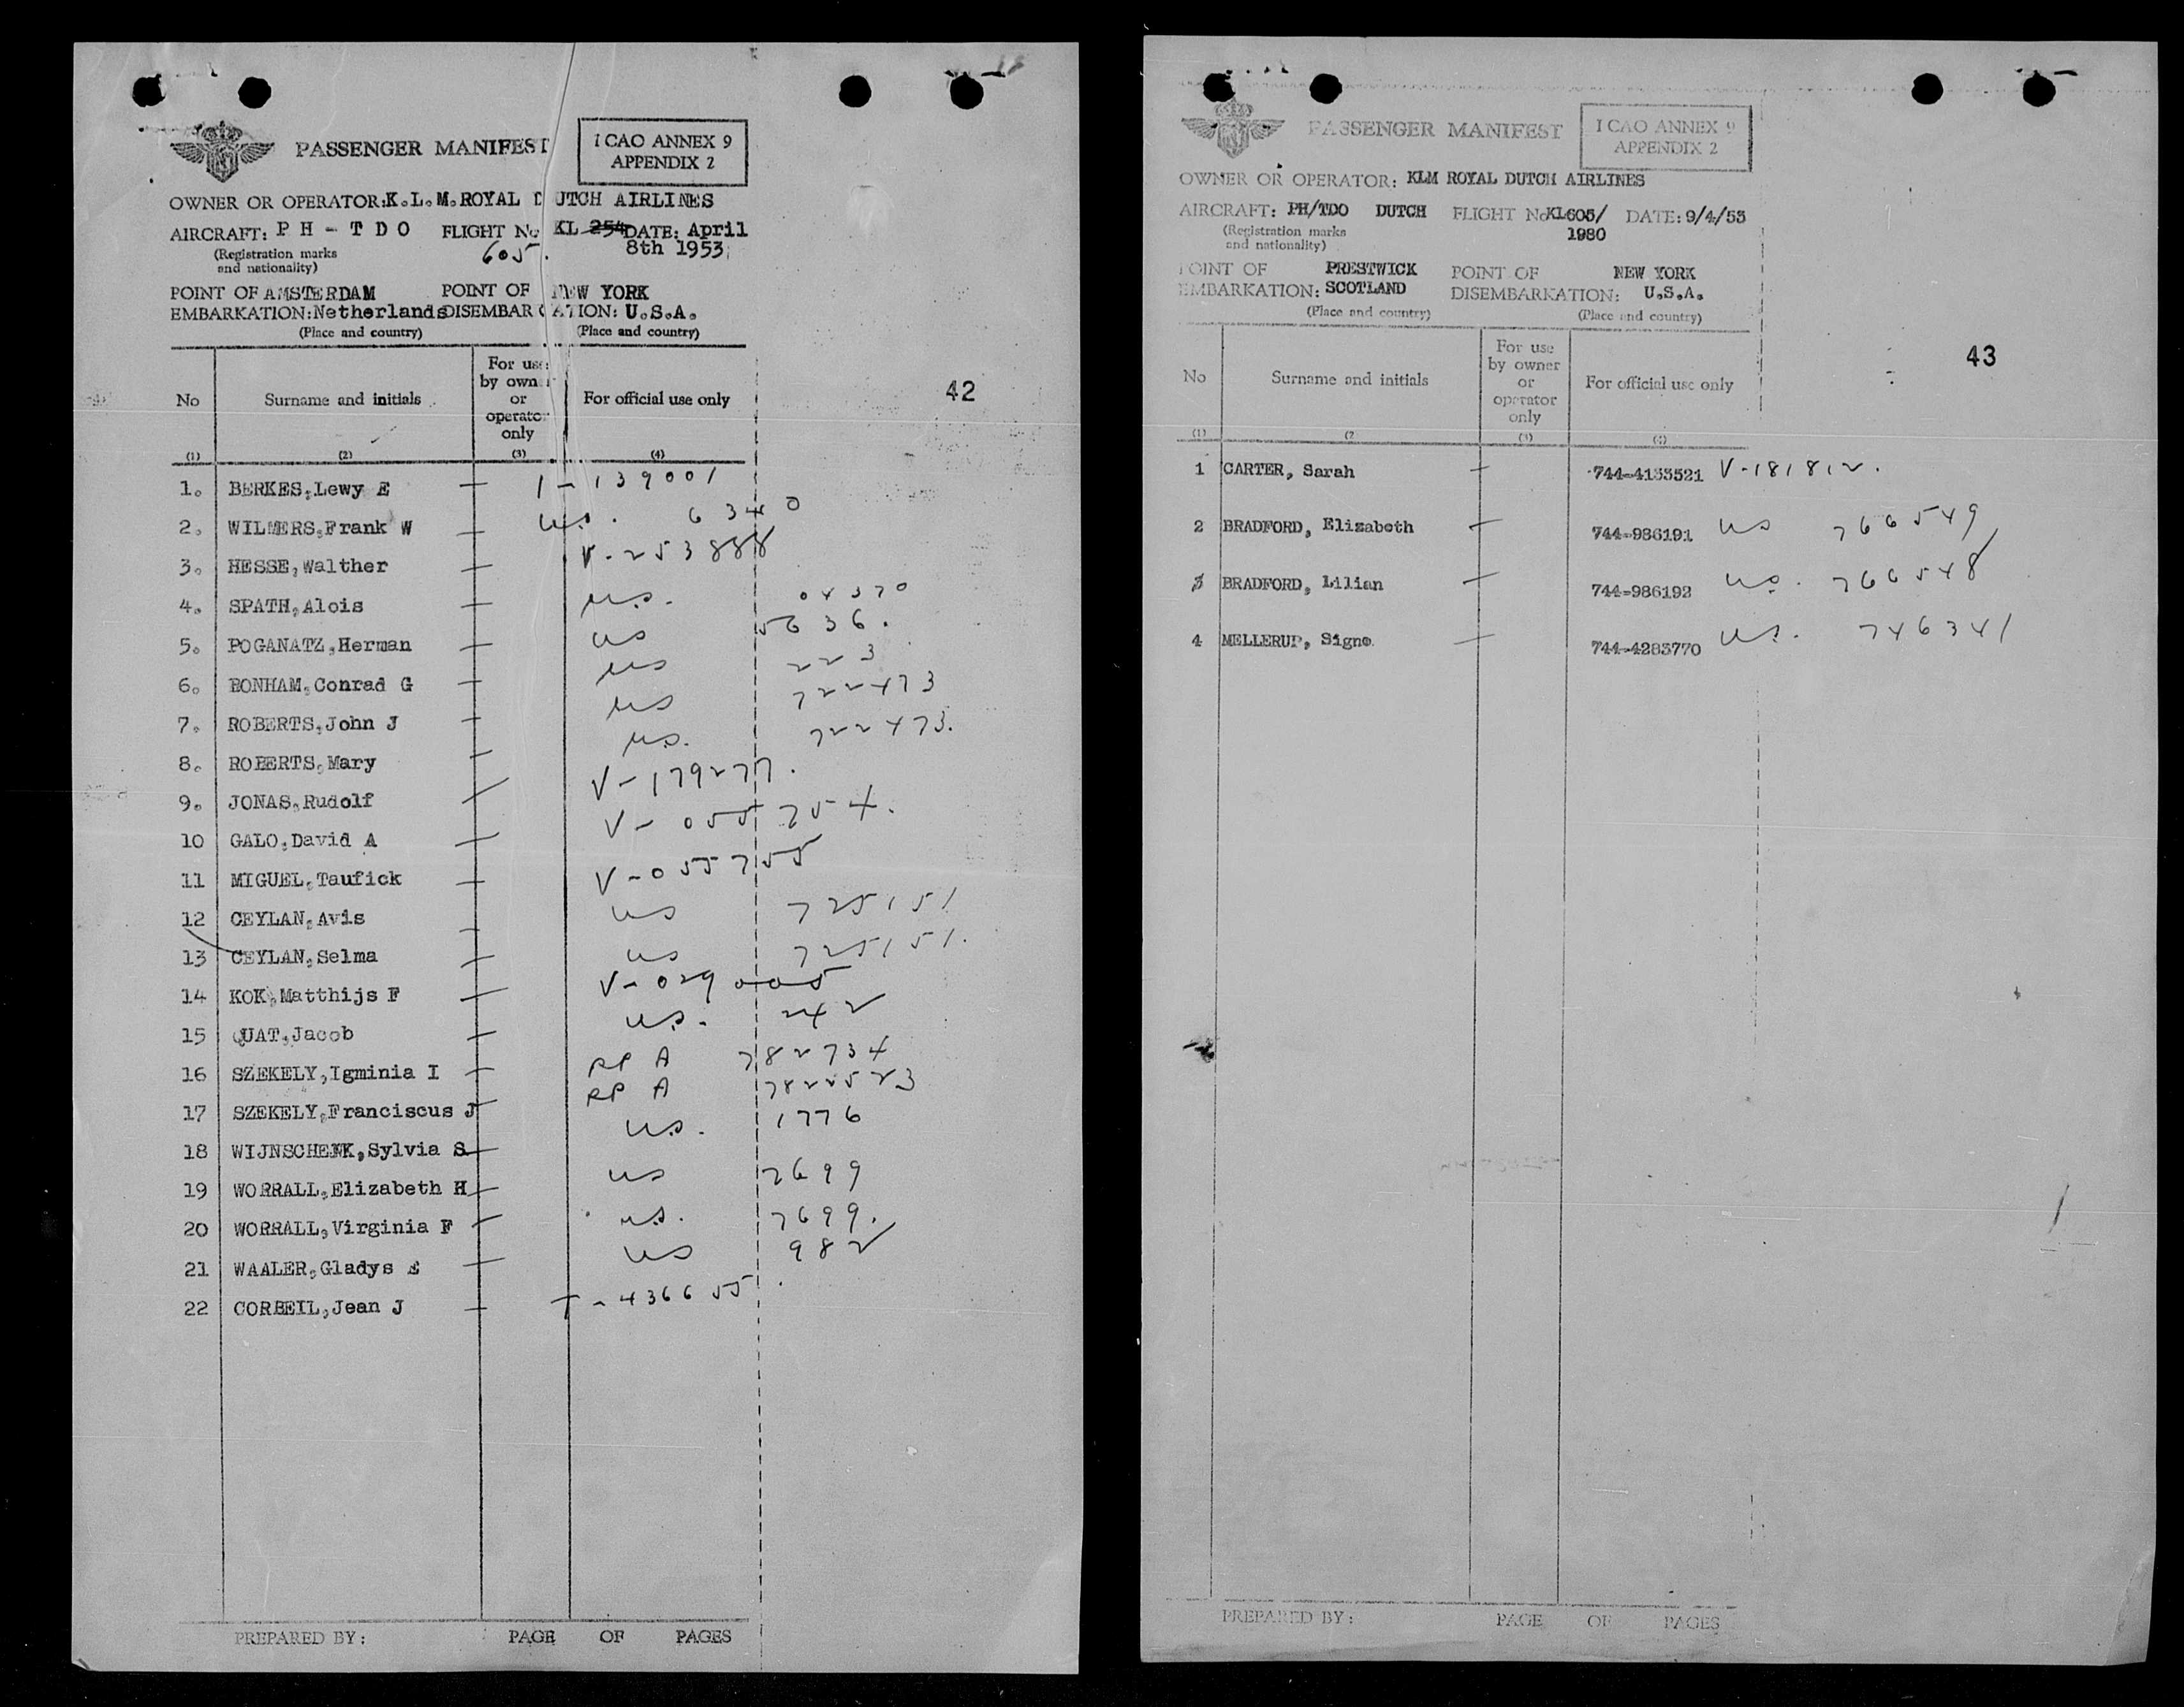 PASSENGER MANIFEST
ICAO ANNEX 9
APPENDIX 2
OWNER OR OPERATOR: K.L.M. ROYAL DUTCH AIRLINES
AIRCRAFT: PH - TDO FLIGHT No KL 254 DATE: April
605. 8th 1953
(Registration marks
and nationality)
POINT OF AMSTERDAM POINT OF NEW YORK
EMBARKATION: Netherlands DISEMBARCATION: U.S.A.
(Place and country) (Place and country)
42
No Surname and initials For use by owner or operator only For official use only
(1) (2) (3) (4)
1. BERKES, Lewy E — 1-139001
2. WILMERS, Frank W — us. 6340
3. HESSE, Walther — V-253888
4. SPATH, Alois — us. 04370
5. POGANATZ, Herman — us 5636.
6. BONHAM, Conrad G — us 223
7. ROBERTS, John J — us 722473
8. ROBERTS, Mary — us. 722473.
9. JONAS, Rudolf — V-179277.
10 GALO, David A — V-055754.
11 MIGUEL, Taufick — V-055755
12 CEYLAN, Avis — us 725151
13 CEYLAN, Selma — us 725151.
14 KOK, Matthijs F — V-029005
15 QUAT, Jacob — us. 242
16 SZEKELY, Igminia I — RP A 782734
17 SZEKELY, Franciscus J — RP A 7822523
18 WIJNSCHENK, Sylvia S — us. 1776
19 WORRALL, Elizabeth H — us 7699
20 WORRALL, Virginia F — us. 7699.
21 WAALER, Gladys E — us 982
22 CORBEIL, Jean J — T-436655.
PREPARED BY: PAGE OF PAGES
PASSENGER MANIFEST
ICAO ANNEX 9
APPENDIX 2
OWNER OR OPERATOR: KLM ROYAL DUTCH AIRLINES
AIRCRAFT: PH/TDO DUTCH FLIGHT No KL605/ DATE: 9/4/53
1980
(Registration marks
and nationality)
POINT OF PRESTWICK POINT OF NEW YORK
EMBARKATION: SCOTLAND DISEMBARKATION: U.S.A.
(Place and country) (Place and country)
43
No Surname and initials For use by owner or operator only For official use only
(1) (2 (3) (4)
1 CARTER, Sarah — 744-4133521 V-181812.
2 BRADFORD, Elizabeth — 744-986191 us 766549
3 BRADFORD, Lilian — 744-986192 us. 766548
4 MELLERUP, Signe — 744-4283770 us. 746341
PREPARED BY: PAGE OF PAGES